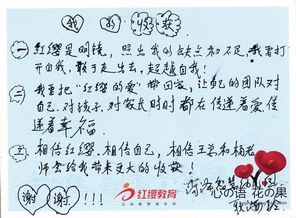 我的收获
一 红缨是明镜，照出我的缺点和不足，我要打
开自我，敢于走出去，超越自我！
二 我要把“红缨的爱”带回家，让自己的团队对
自己、对孩子、对家长时时都在传递着爱传
递着幸福
三 相信红缨，相信自己，相信王总和杨老
师会给我带来更大的收获！
谢谢!!!
红缨教育
心の语 花の果